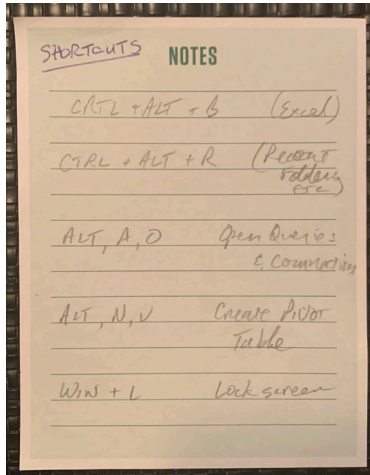 SHORTCUTS
NOTES
CRTL + ALT + B (Excel)
CTRL + ALT + R (Recent
Folders
ETC)
ALT, A, O Open Queries
& Connections
ALT, N, V Create Pivot
Table
WIN + L Lock screen